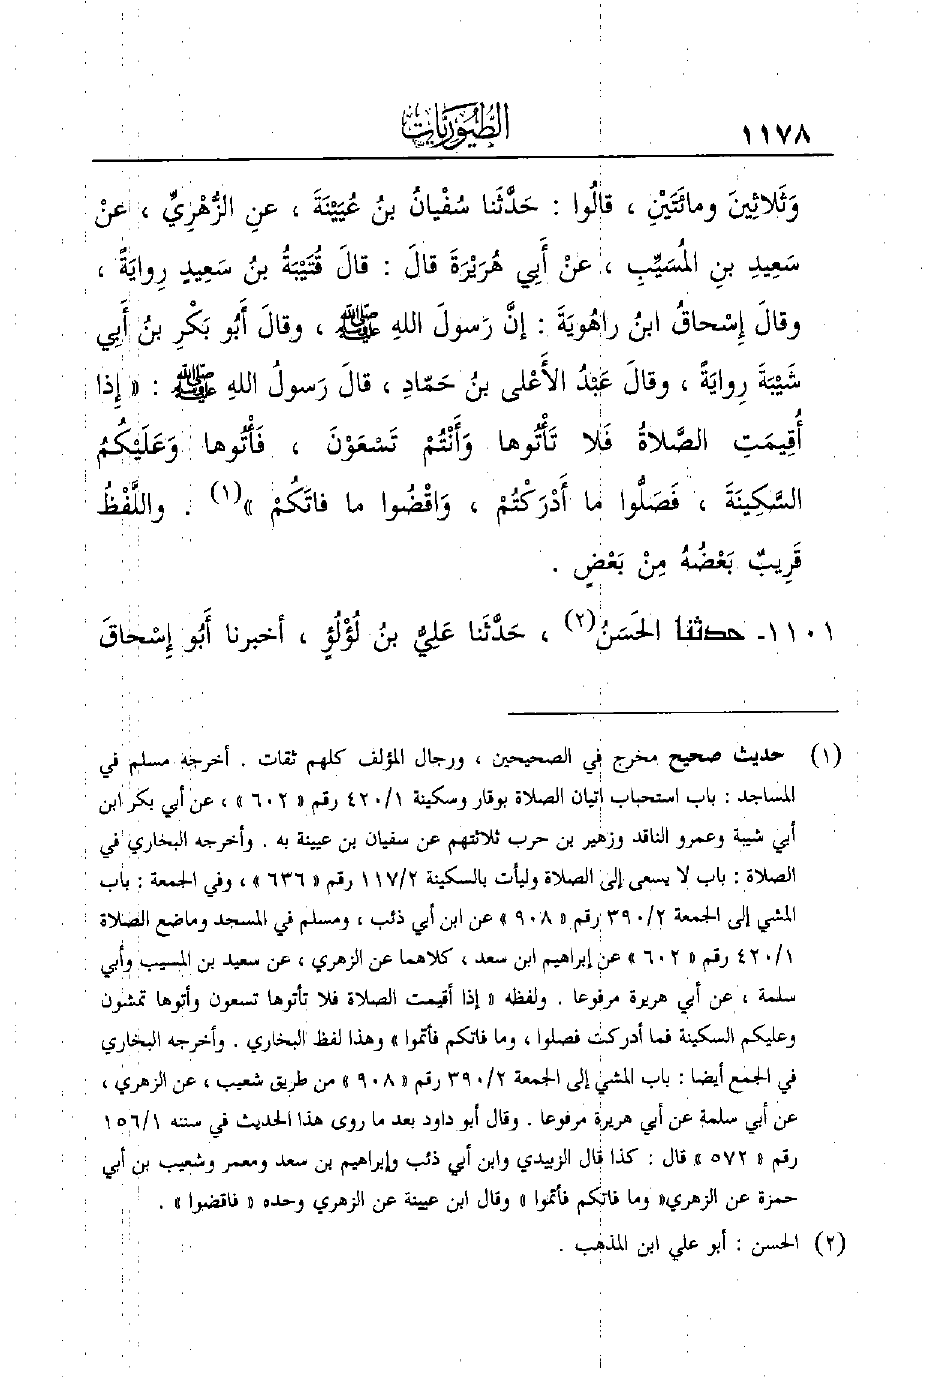 ١١٧٨ الطيوريات
وَثَلاثِينَ ومائَتَيْنِ ، قالُوا : حَدَّثَنا سُفْيانُ بنُ عُيَيْنَةَ ، عنِ الزُّهْرِيِّ ، عنْ
سَعِيدِ بنِ المُسَيِّبِ ، عنْ أَبِي هُرَيْرَةَ قالَ : قالَ قُتَيْبَةُ بنُ سَعِيدٍ رِوايَةً ،
وقالَ إِسْحاقُ ابنُ راهُويَةَ : إنَّ رَسولَ اللهِ ﷺ ، وقالَ أَبُو بَكْرِ بنُ أَبِي
شَيْبَةَ رِوايَةً ، وقالَ عَبْدُ الأَعْلى بنُ حَمّادٍ ، قالَ رَسولُ اللهِ ﷺ : « إِذا
أُقِيمَتِ الصَّلاةُ فَلا تَأْتُوها وَأَنْتُمْ تَسْعَوْنَ ، فَأْتُوها وَعَلَيْكُمُ
السَّكِينَةَ ، فَصَلُّوا ما أَدْرَكْتُمْ ، وَاقْضُوا ما فاتَكُمْ »(١) . واللَّفْظُ
قَرِيبٌ بَعْضُهُ مِنْ بَعْضٍ .
١١٠١- حدثنا الحَسَنُ(٢) ، حَدَّثَنا عَلِيُّ بنُ لُؤْلُؤٍ ، أخبرنا أَبُو إِسْحاقَ
(١) حديث صحيح مخرج في الصحيحين ، ورجال المؤلف كلهم ثقات . أخرجه مسلم في
المساجد : باب استحباب إتيان الصلاة بوقار وسكينة ٤٢٠/١ رقم « ٦٠٢ » ، عن أبي بكر ابن
أبي شيبة وعمرو الناقد وزهير بن حرب ثلاثتهم عن سفيان بن عيينة به . وأخرجه البخاري في
الصلاة : باب لا يسعى إلى الصلاة وليأت بالسكينة ١١٧/٢ رقم « ٦٣٦ » ، وفي الجمعة : باب
المشي إلى الجمعة ٣٩٠/٢ رقم « ٩٠٨ » عن ابن أبي ذئب ، ومسلم في المسجد وماضع الصلاة
٤٢٠/١ رقم « ٦٠٢ » عن إبراهيم ابن سعد ، كلاهما عن الزهري ، عن سعيد بن المسيب وأبي
سلمة ، عن أبي هريرة مرفوعا . ولفظه « إذا أقيمت الصلاة فلا تأتوها تسعون وأتوها تمشون
وعليكم السكينة فما أدركت فصلوا ، وما فاتكم فأتموا » وهذا لفظ البخاري . وأخرجه البخاري
في الجمع أيضا : باب المشي إلى الجمعة ٣٩٠/٢ رقم « ٩٠٨ » من طريق شعيب ، عن الزهري ،
عن أبي سلمة عن أبي هريرة مرفوعا . وقال أبو داود بعد ما روى هذا الحديث في سننه ١٥٦/١
رقم « ٥٧٢ » قال : كذا قال الزبيدي وابن أبي ذئب وإبراهيم بن سعد ومعمر وشعيب بن أبي
حمزة عن الزهري« وما فاتكم فأتموا » وقال ابن عيينة عن الزهري وحده « فاقضوا » .
(٢) الحسن : أبو علي ابن المذهب .